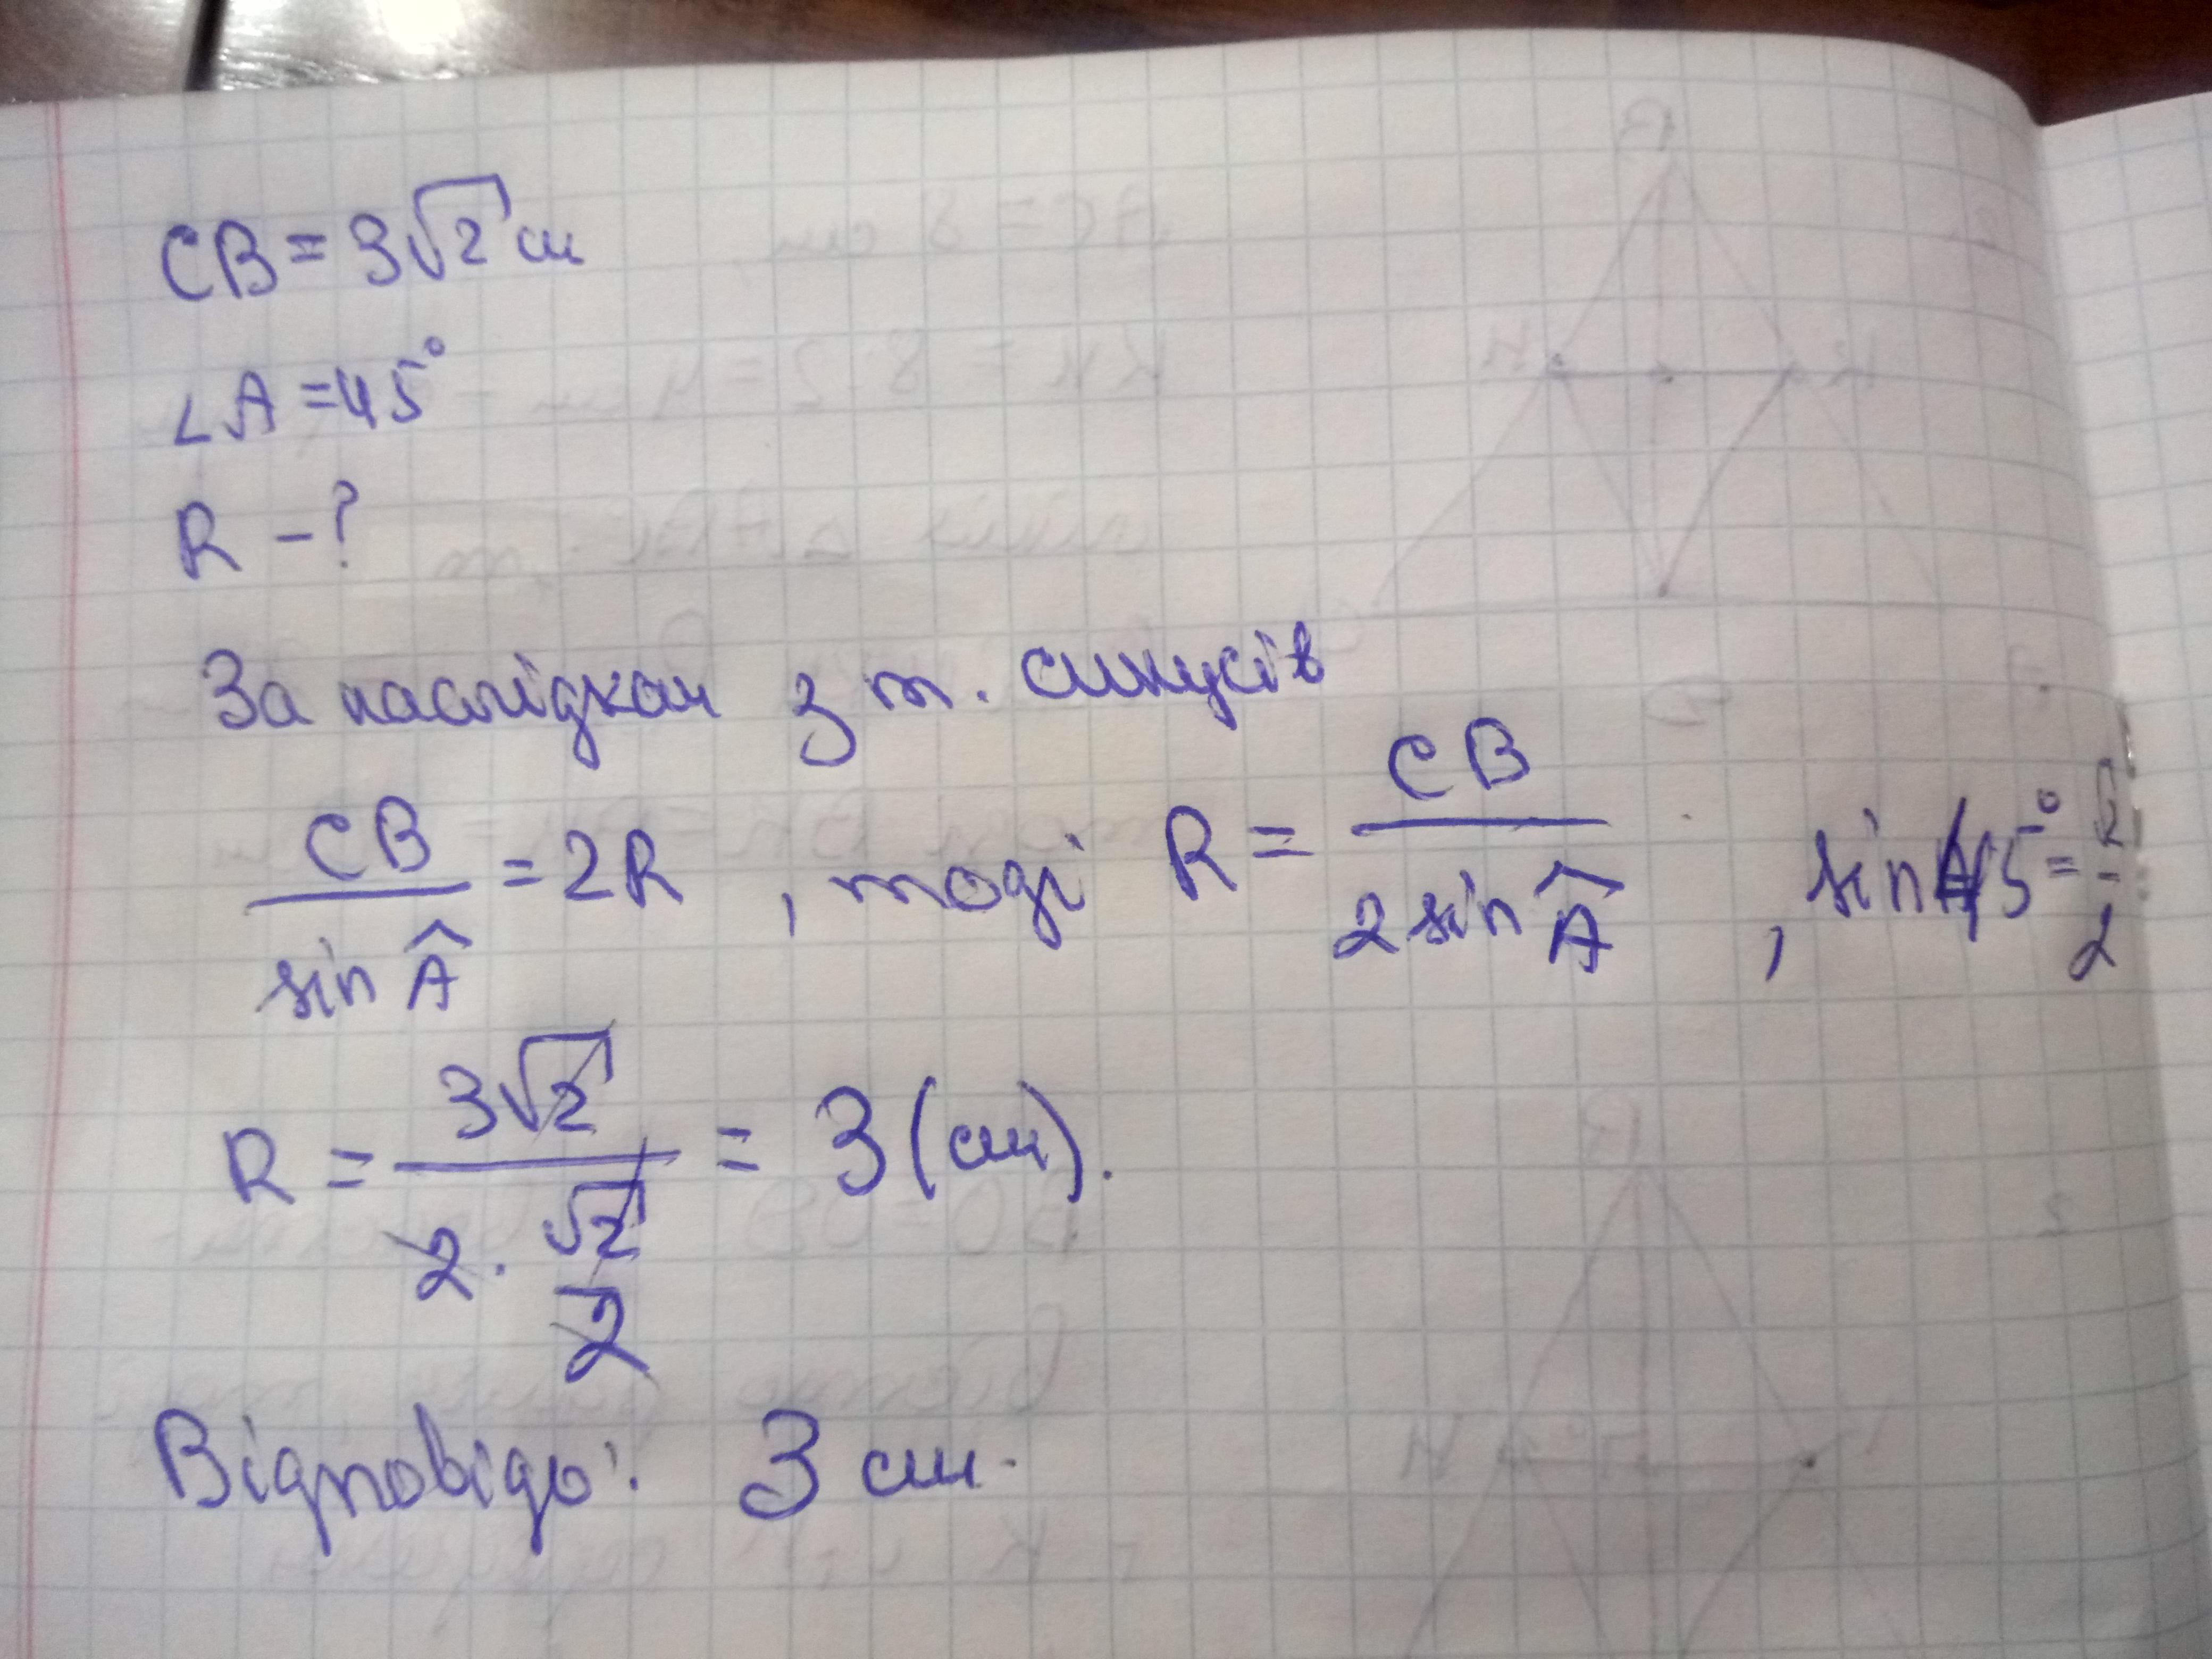 CB = 3√2 см
∠A = 45°
R - ?
За наслідком з т. синусів
CB / sin Â = 2R , тоді R = CB / 2 sin Â , sin 45° = √2 / 2
R = 3√2 / 2 · √2 / 2 = 3 (см).
Відповідь: 3 см.